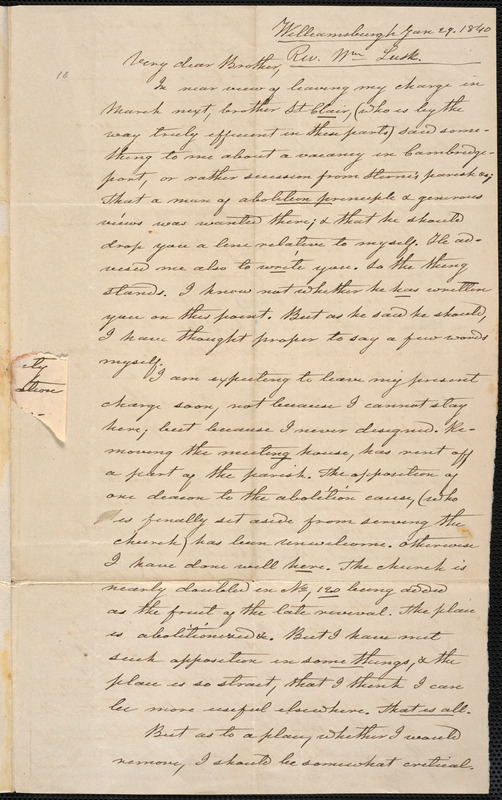 Williamsburgh Jan 29. 1840
Rev. Wm Lusk.
Very dear Brother,
10
In near view of leaving my charge in
March next, brother St Clair, (who is by the
way truly efficient in these parts) said some-
thing to me about a vacancy in Cambridge-
port, or rather secession from Sterns parish &c;
That a man of abolition principle & generous
views was wanted there; & that he should
drop you a line relative to myself. He ad-
vised me also to write you. So the thing
stands. I know not whether he has written
you on this point. But as he said he should,
I have thought proper to say a few words
myself.
ity
ation
I am expecting to leave my present
charge soon, not because I cannot stay
here; but because I never designed. Re-
moving the meeting house, has rent off
a part of the parish. The opposition of
one deacon to the abolition cause, (who
is finally set aside from serving the
church) has been unwelcome. Otherwise
I have done well here. The church is
nearly doubled in No, 120 being added
as the fruit of the late revival. The place
is abolitionized &c. But I have met
such opposition in some things, & the
place is so strait, that I think I can
be more useful elsewhere. That is all.
But as to a place, whether I would
remove, I should be somewhat critical.